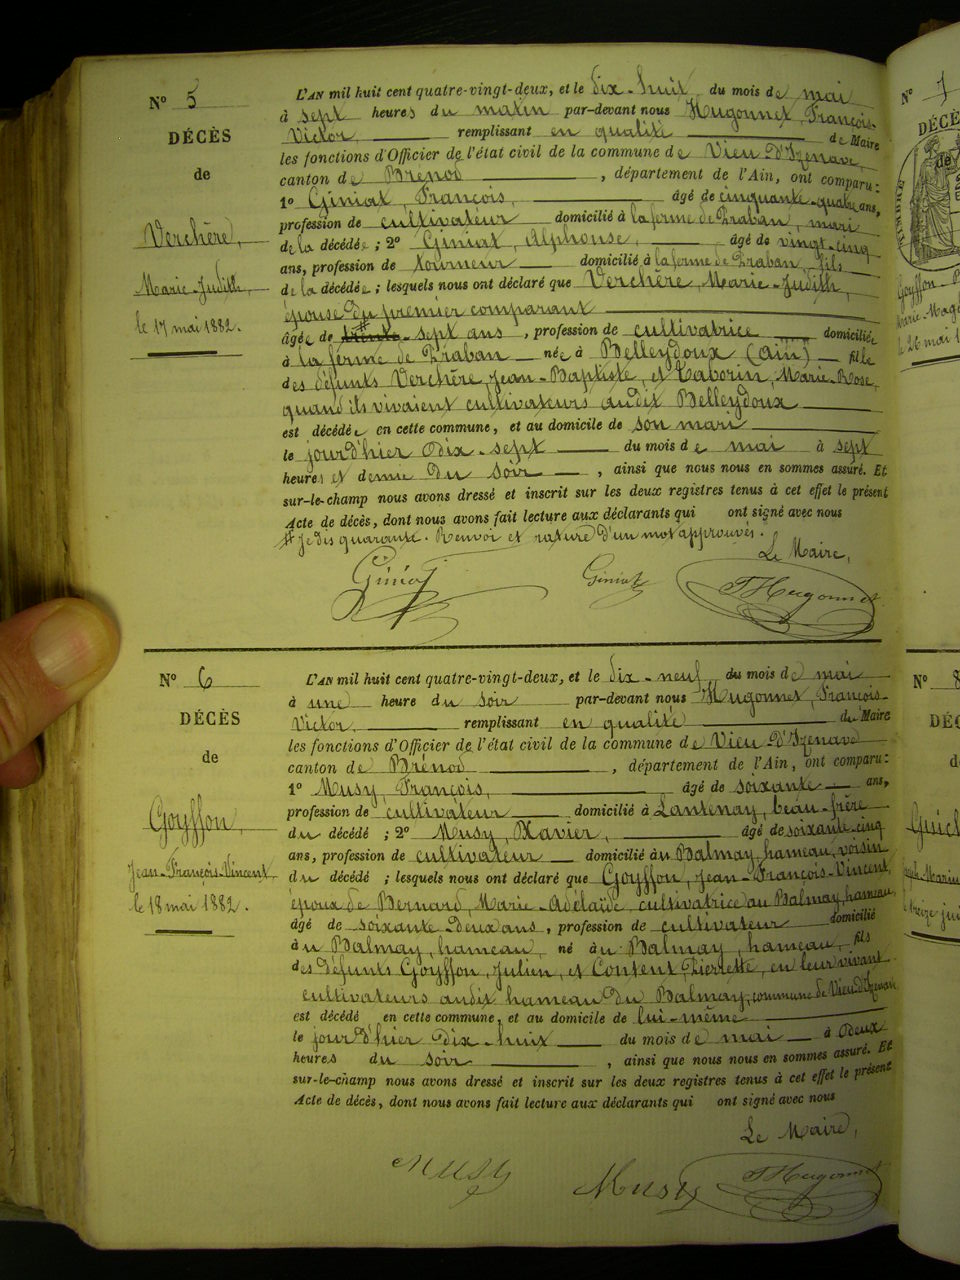 N° 5
DÉCÈS
de
Verchère,
Marie-Judith,
le 17 mai 1882.
L'AN mil huit cent quatre-vingt-deux, et le dix-huit du mois de mai
à sept heures du matin par-devant nous Hugonnet, François-
Victor, remplissant en qualité de Maire
les fonctions d'Officier de l'état civil de la commune de Vieu d'Izenave,
canton de Brenod, département de l'Ain, ont comparu:
1° Giniat, François, âgé de cinquante-quatre ans,
profession de cultivateur domicilié à la ferme de Praban, mari
de la décédée; 2° Giniat, Alphonse, âgé de vingt-cinq
ans, profession de tourneur domicilié à la ferme de Praban, fils
de la décédée; lesquels nous ont déclaré que Verchère, Marie-Judith,
épouse du premier comparant
âgée de trente # sept ans, profession de cultivatrice domiciliée
à la ferme de Praban née à Belleydoux (Ain) fille
des défunts Verchère, Jean-Baptiste, et Taborin, Marie-Rose,
quand ils vivaient cultivateurs audit Belleydoux
est décédée en cette commune, et au domicile de son mari
le jourd'hier dix-sept du mois de mai à sept
heures et demie du soir, ainsi que nous nous en sommes assuré. Et
sur-le-champ nous avons dressé et inscrit sur les deux registres tenus à cet effet le présent
Acte de décès, dont nous avons fait lecture aux déclarants qui ont signé avec nous
# Je dis quarante. Renvoi et rature d'un mot approuvés.
Le Maire,
Giniat Giniat F Hugonnet
N° 6
DÉCÈS
de
Goyffon,
Jean-François-Vincent
le 18 mai 1882.
L'AN mil huit cent quatre-vingt-deux, et le dix-neuf du mois de mai
à une heure du soir par-devant nous Hugonnet, François-
Victor, remplissant en qualité de Maire
les fonctions d'Officier de l'état civil de la commune de Vieu d'Izenave
canton de Brénod, département de l'Ain, ont comparu:
1° Musy, François, âgé de soixante ans,
profession de cultivateur domicilié à Lantenay, beau-frère
du décédé; 2° Musy, Xavier, âgé de soixante-cinq
ans, profession de cultivateur domicilié au Balmay, hameau, voisin
du décédé; lesquels nous ont déclaré que Goyffon, Jean-François-Vincent,
époux de Bernard, Marie-Adélaïde, cultivatrice au Balmay, hameau,
âgé de soixante deux ans, profession de cultivateur domicilié
au Balmay, hameau, né au Balmay, hameau, fils
des défunts Goyffon, Julien, et Content, Pierrette, en leur vivant
cultivateurs audit hameau du Balmay, commune de Vieu d'Izenave
est décédé en cette commune, et au domicile de lui-même
le jourd'hier dix-huit du mois de mai à deux
heures du soir, ainsi que nous nous en sommes assuré. Et
sur-le-champ nous avons dressé et inscrit sur les deux registres tenus à cet effet le présent
Acte de décès, dont nous avons fait lecture aux déclarants qui ont signé avec nous
Le Maire,
Musy Musy F Hugonnet
N° 7
DÉCÈS
de
TIMBRE
Goyffon
le 26 mai
N° 8